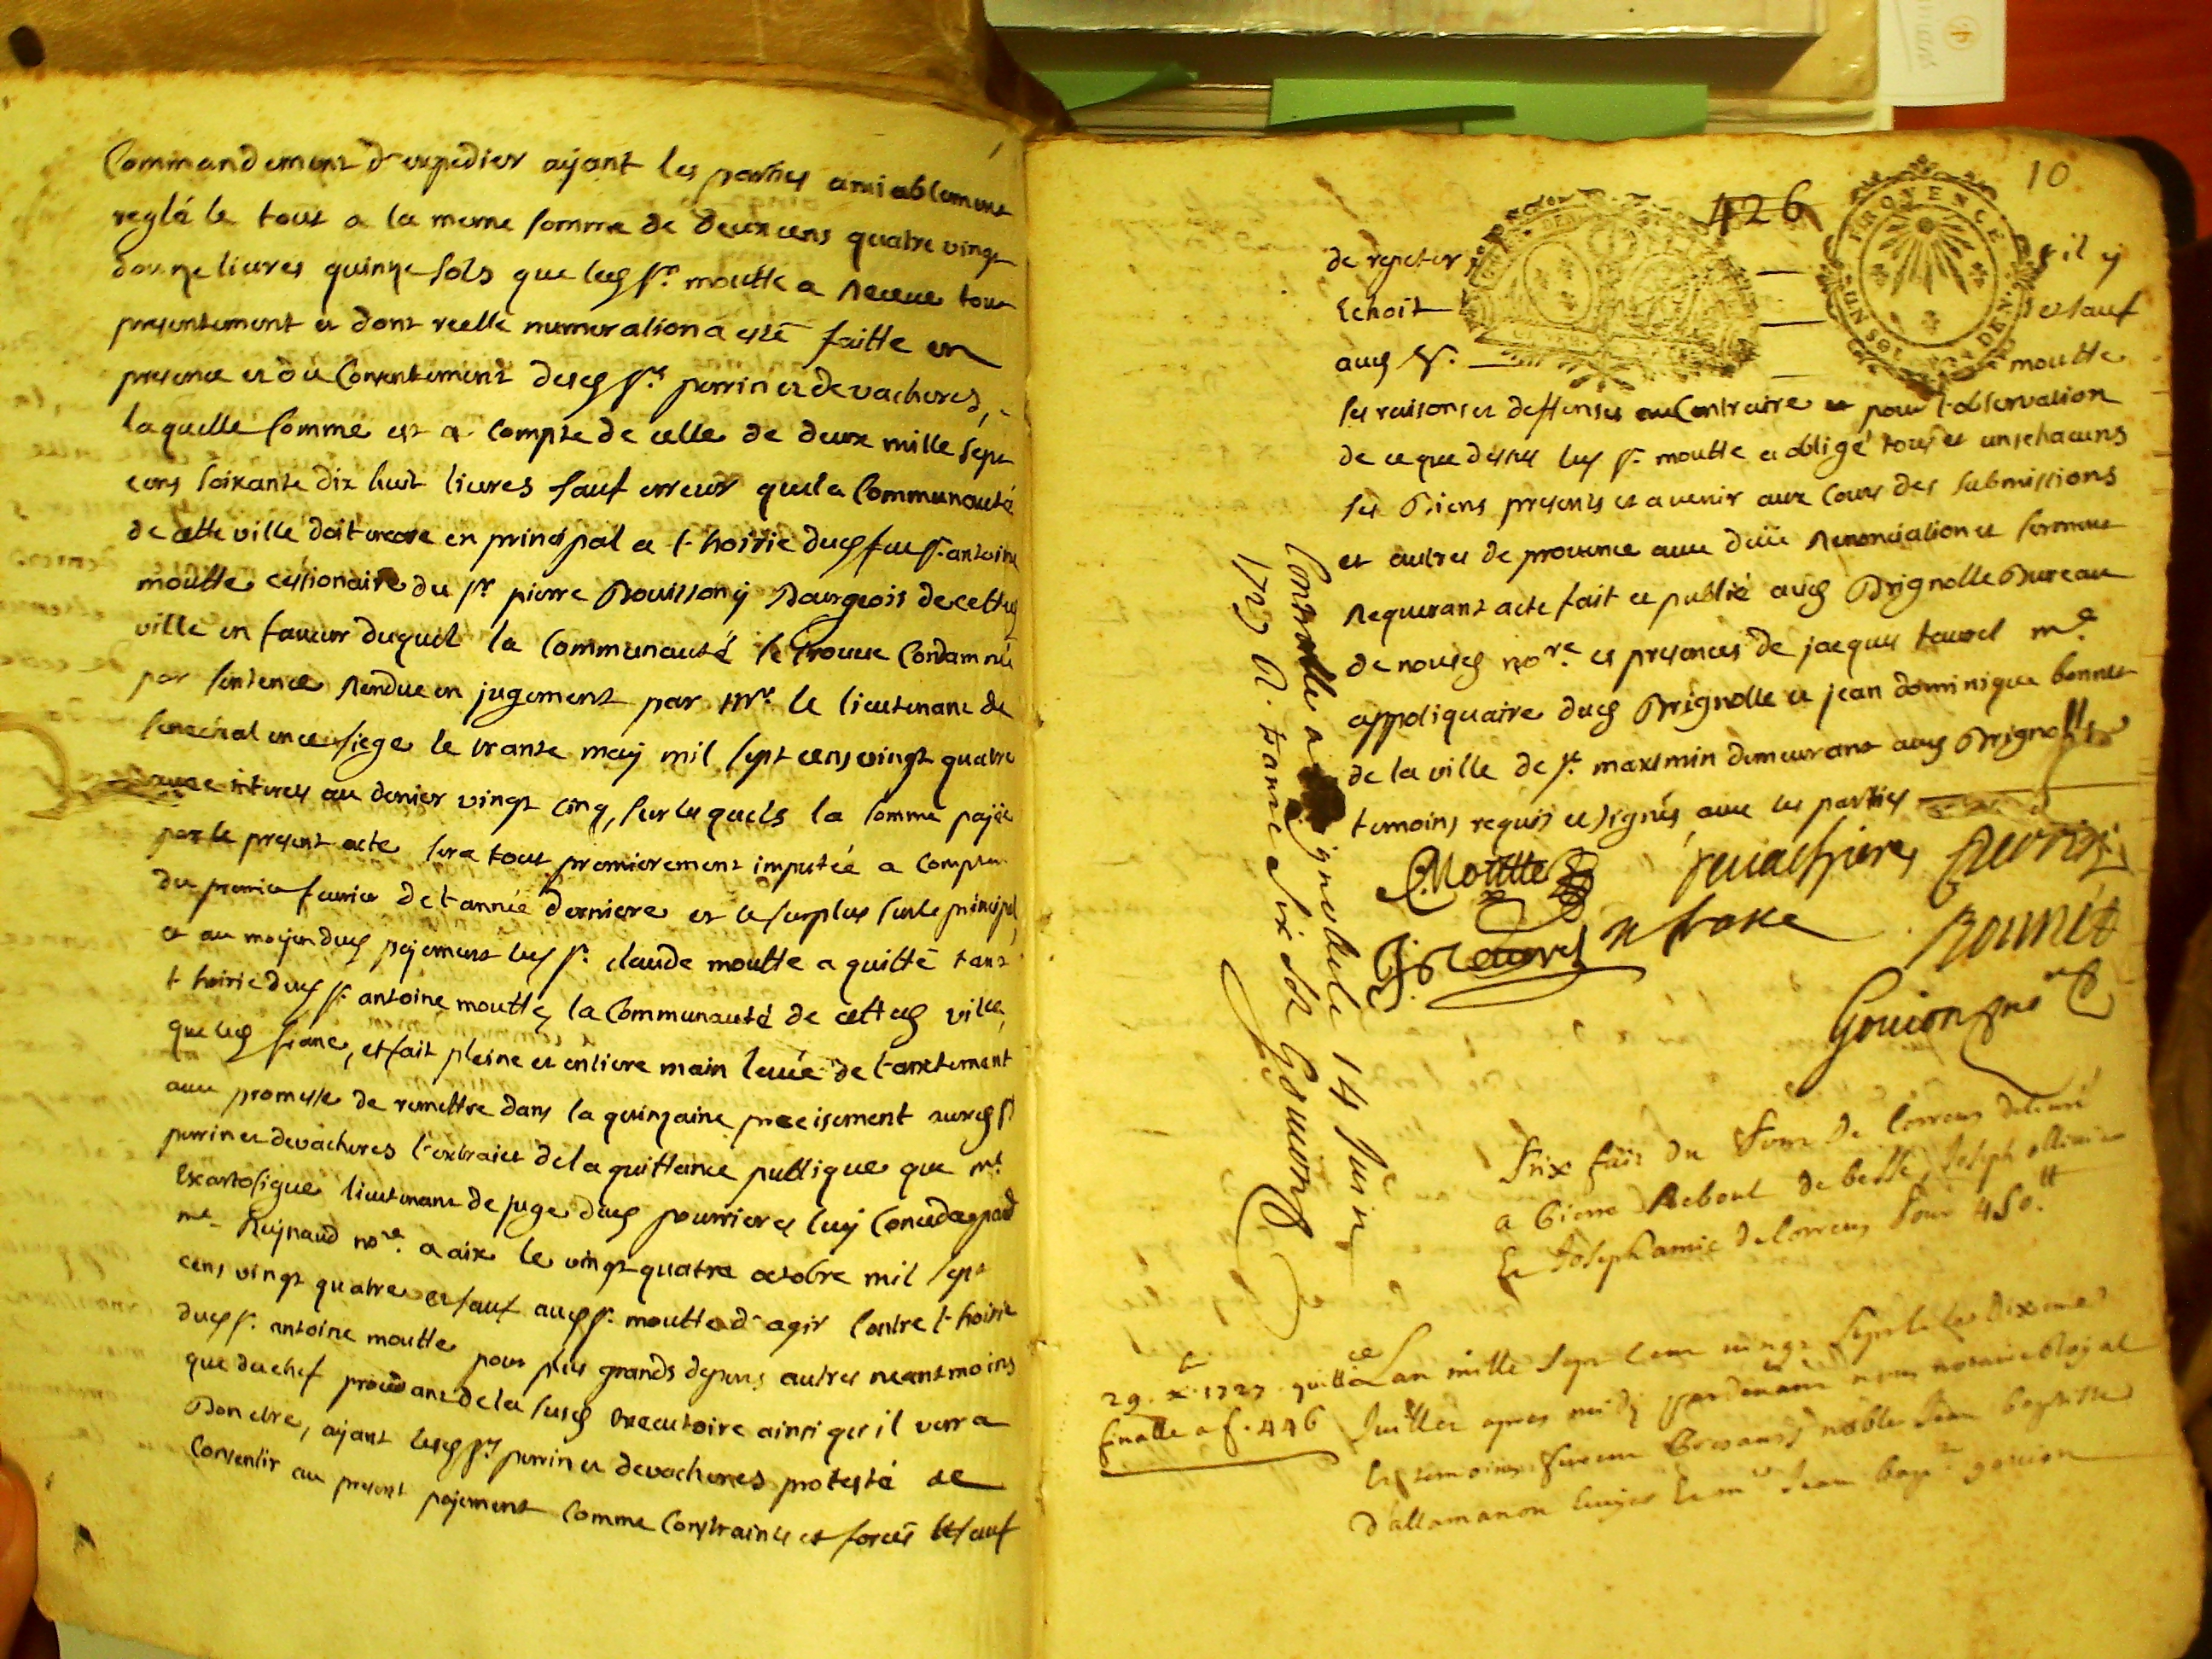 Commandement d'expedier aÿant les parties amiablement
reglé le tout a la meme somme de deux cens quatre vingt
douze livres quinze sols que led sr. moutte a Receue tout
presentement et dont reelle numeration a esté faitte en
presence et du Consentement desd srs perrin et de vacheres,
laquelle somme est a compte de celle de deux mille sept
cens soixante dix huit livres sauf erreur que la Communauté
de cette ville doit encore en principal a l'hoirie dud feu sr. antoine
moutte cessionaire du sr pierre Bouissonÿ Bourgeois de cetted
ville en faveur duquel la Communauté se trouve Condamnée
par sentence Rendue en jugement par mr. le lieutenant de
senechal en ce siege le trante maÿ mil sept cens vingt quatre
avec interets au denier vingt cinq, sur lesquels la somme paÿée
par le present acte sera tout premierement imputée a compter
du premier fevrier de l'année derniere et le surplus sur le principal,
et au moÿen dud paÿement led sr. claude moutte a quitté tant
l'hoirie dud sr. antoine moutte, la Communauté de cetted ville,
que led franc, et fait pleine et entiere main levée de l'arrestement
avec promesse de remettre dans la quinzaine precisement auxd srs
perrin et devacheres l'extrait de la quittance publique que me
Escartefigue lieutenant de juge dud pourrieres luÿ
me Reÿnaud nore. a aix le vingt quatre octobre mil sept
cens vingt quatre et sauf aud sr. moutte d'agir contre l'hoirie
dud sr. antoine moutte pour plus grands depens autres neantmoins
que du chef procedant de la susd Executoire ainsi qu'il verra
Bon etre, aÿant lesd srs perrin et devacheres protesté de
Consentir au present paÿement comme contraints et forcés et sauf
10
426
PROVENCE
UN SOL
DEN.
de repeter s'il ÿ
Echoit et sauf
aud sr. moutte
ses raisons et deffenses au Contraire et pour l'observation
de ce que dessus led sr. moutte a obligé tous et uns chacuns
ses Biens presents et a venir aux Cours des submissions
et autres de provence avec deüe Renonciation et serment
Requerant acte fait et publié aud Brignolle Bureau
de nousd nore. es presences de jacques tavrel me
appotiquaire dud Brignolle et jean dominique bonnet
de la ville de st. maximin demeurant aud Brignolle
temoins requis et signés avec les parties
C. Moutte devachieres Perrin
J. Tavrel n franc Bounet
Goujon nore
Controlle a Brignolle le 14 Juin
1727 R. trante six s Goujon
Prix fait du Four de Correns delivré
a Pierre Reboul de besse, Joseph ollivier
Et Joseph amic de Correns Pour 450.tt
29. xbre 1727. quittce
finalle a f. 446
L'an mille sept cent vingt sept le dixieme
Juillet apres midy pardevant nous notaire Royal
Et temoins furent presants noble Jean baptiste
d'allamanon Ecuÿer Et me Jean bapte goujon